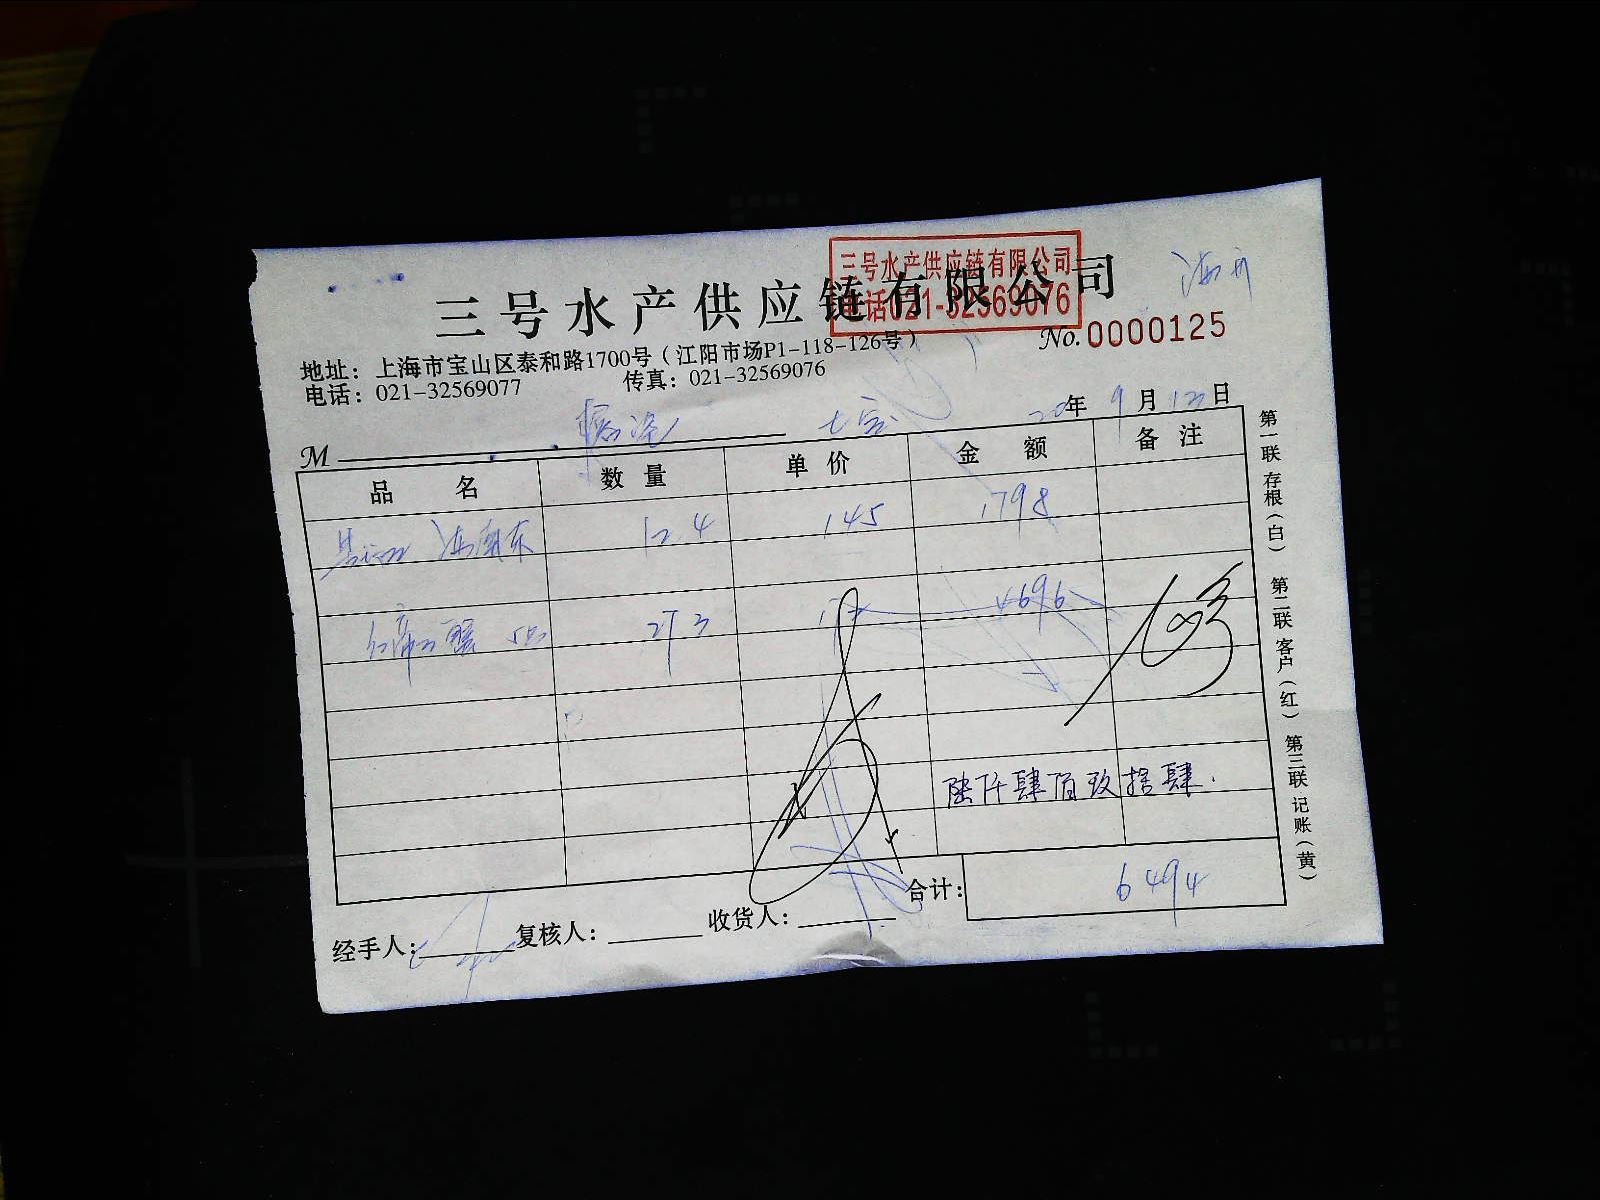 三号水产供应链有限公司
三号水产供应链有限公司
电话021-32569076
No. 0000125
地址：上海市宝山区泰和路1700号（江阳市场P1-118-126号）
电话：021-32569077 传真：021-32569076
七宝
20年 9月 12日
M
品名 数量 单价 金额 备注
12.4 145 1798
4696
陆仟肆佰玖拾肆.
合计： 6494
经手人： 复核人： 收货人：
第一联 存根（白） 第二联 客户（红） 第三联 记账（黄）